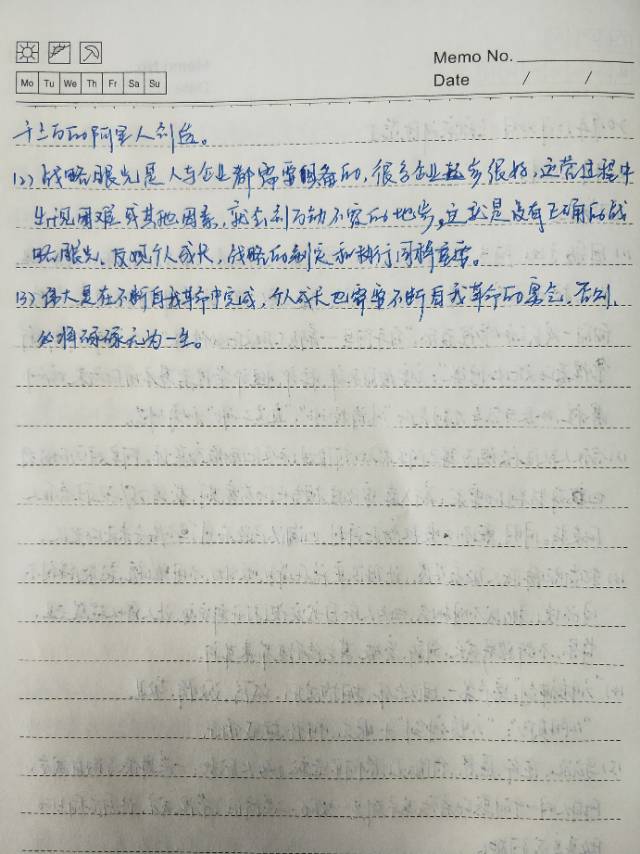 Memo No.
Mo Tu We Th Fr Sa Su
Date / /
千上万的阿里人创造。
(2) 战略眼光是人与企业都需要具备的,很多企业起步很好,运营过程中
出现困难或其他因素,就会到万劫不复的地步,这就是没有正确的战
略眼光。反观个人成长,战略的制定和执行同样重要。
(3) 伟大是在不断自我革命中完成,个人成长也需要不断自我革命的勇气,否则,
必将碌碌无为一生。